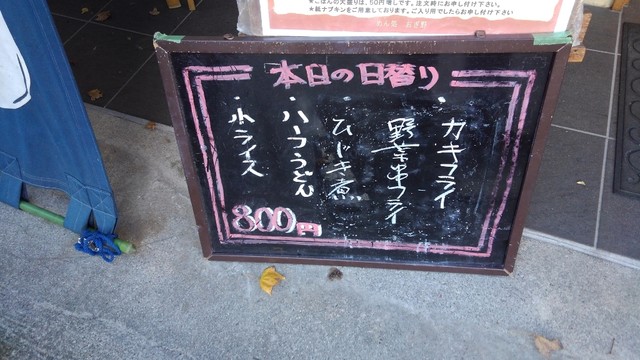 ●ごはんの大盛りは、50円増しです。注文時にお申し付け下さい。
●紙ナプキンをご用意しております。ご入用でしたらお申し付け下さい
本日の日替り
・カキフライ
・野菜串フライ
・ひじき煮
・ハーフうどん
・小ライス
800円